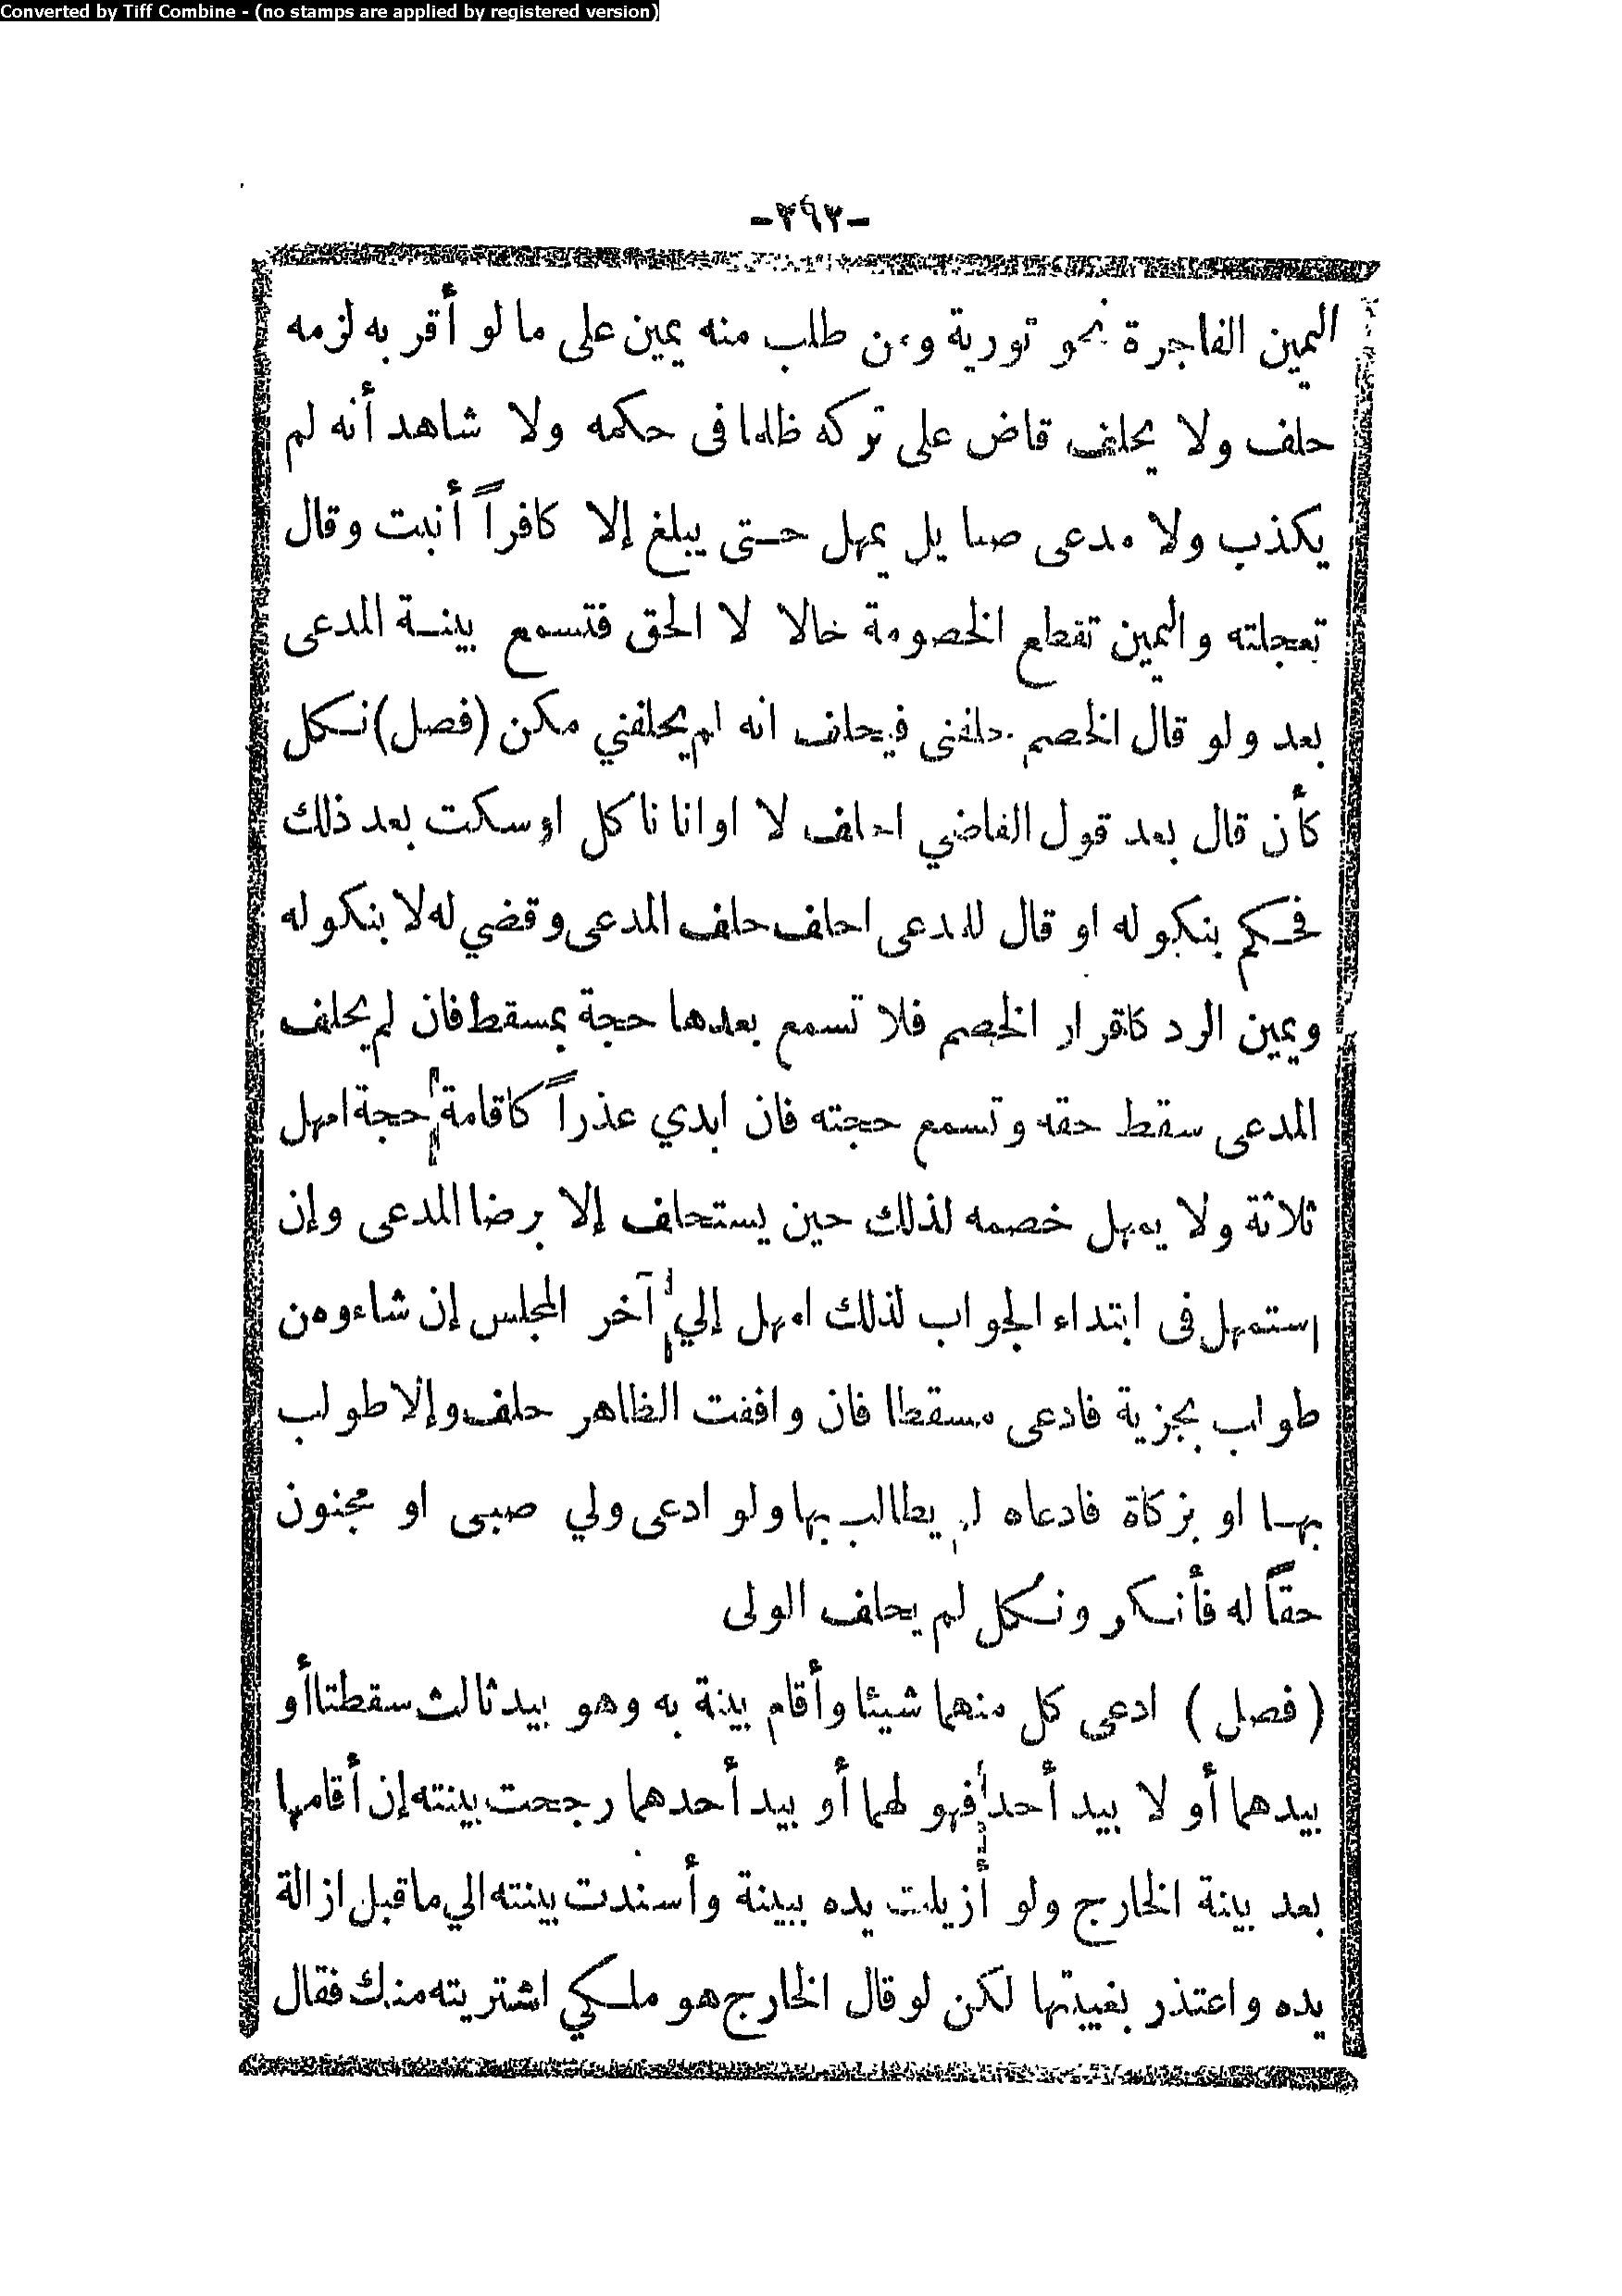 Converted by Tiff Combine - (no stamps are applied by registered version)
-٣٩٣-
اليمين الفاجرة نحو تورية ومن طلب منه يمين على ما لو أقر به لزمه
حلف ولا يحلف قاض على تركه ظلما فى حكمه ولا شاهد أنه لم
يكذب ولا مدعى صبا يل يمهل حتى يبلغ إلا كافراً أنبت وقال
تعجلته واليمين تقطع الخصومة خالا لا الحق فتسمع بينة المدعى
بعد ولو قال الخصم حلفنى فيحلف انه لم يحلفني مكن (فصل) نكل
كأن قال بعد قول القاضي احلف لا او انا ناكل او سكت بعد ذلك
فحكم بنكوله او قال للمدعى احلف حلف المدعى وقضي له لا بنكوله
ويمين الرد كاقرار الخصم فلا تسمع بعدها حجة بمسقط فان لم يحلف
المدعى سقط حقه وتسمع حجته فان ابدي عذراً كاقامة حجة امهل
ثلاثة ولا يمهل خصمه لذلك حين يستحلف إلا برضا المدعى وإن
استمهل فى ابتداء الجواب لذلك امهل إلي آخر المجلس إن شاء ومن
طولب بجزية فادعى مسقطا فان وافقت الظاهر حلف وإلا طولب
بها او بزكاة فادعاه لم يطالب بها ولو ادعى ولي صبى او مجنون
حقاً له فأنكر ونكل لم يحلف الولى
(فصل) ادعى كل منهما شيئا وأقام بينة به وهو بيد ثالث سقطتا أو
بيدهما أو لا بيد أحد فهو لهما أو بيد أحدهما رجحت بينته إن أقامها
بعد بينة الخارج ولو أزيلت يده ببينة وأسندت بينته الي ما قبل ازالة
يده واعتذر بغيبتها لكن لو قال الخارج هو ملكي اشتريته منك فقال